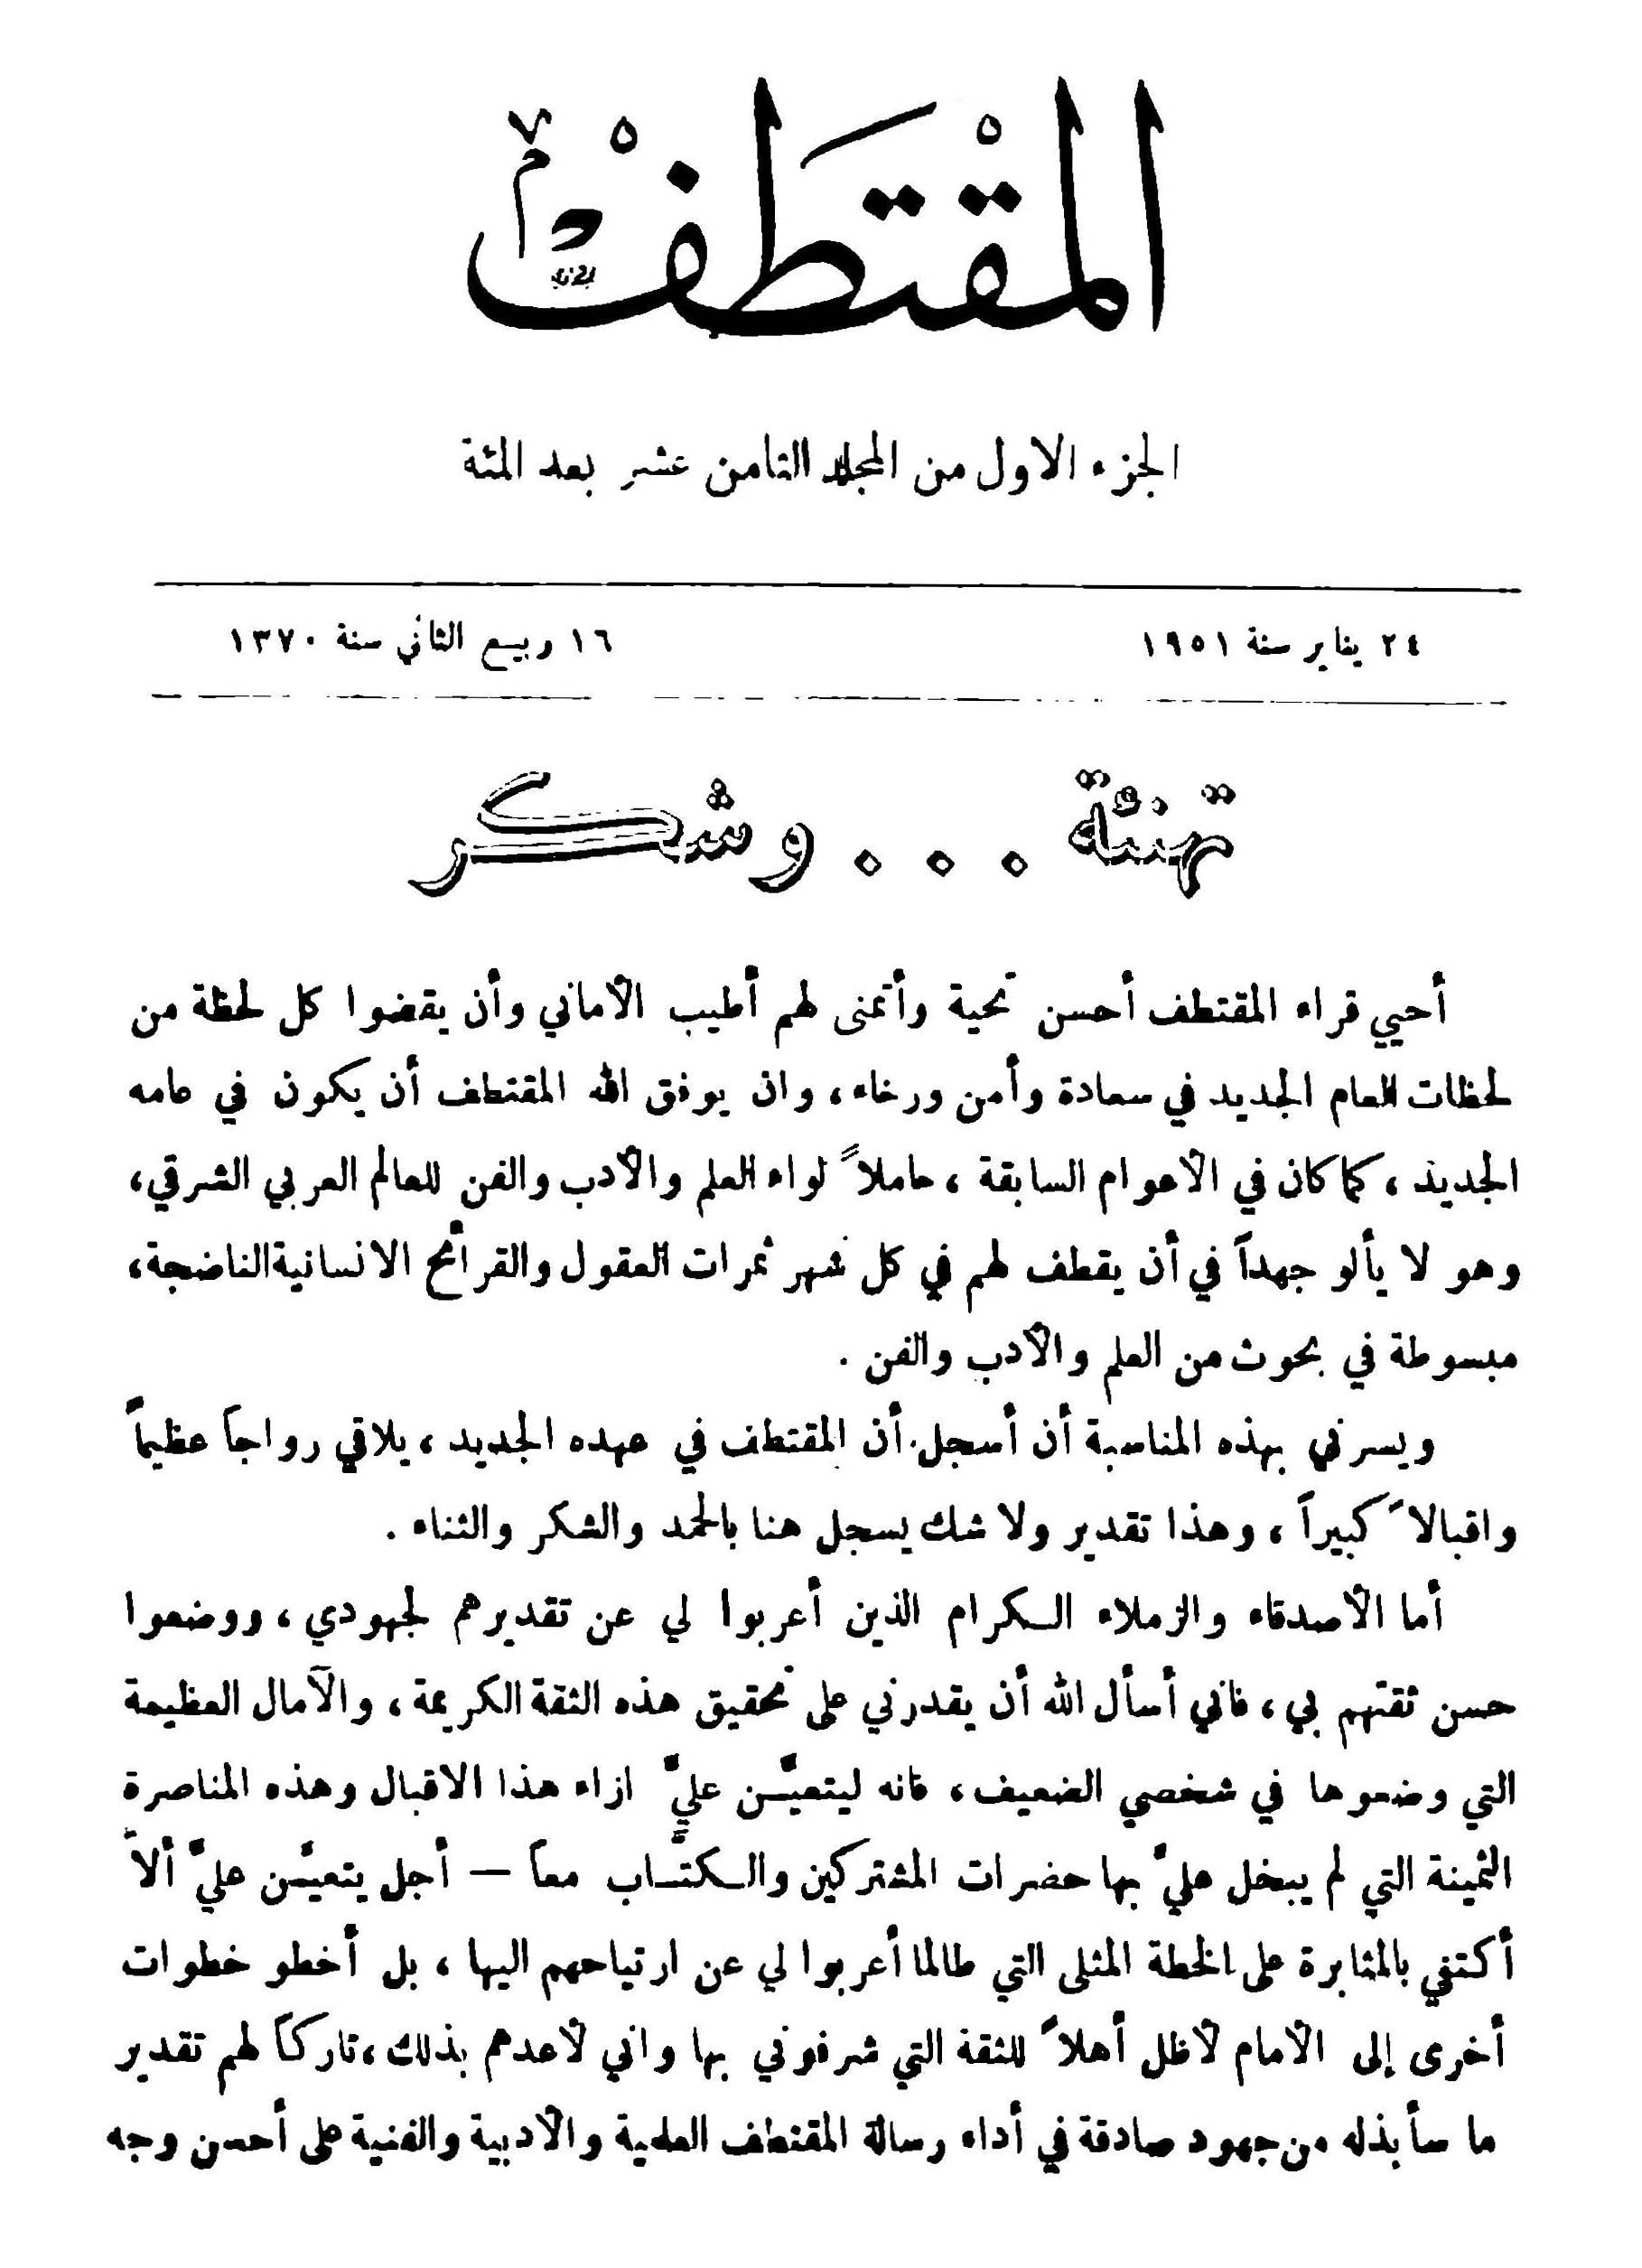 المقتطف
الجزء الاول من المجلد الثامن عشر بعد المئة
٢٤ يناير سنة ١٩٥١
١٦ ربيع الثاني سنة ١٣٧٠
تهنئة . . . وشكر
أحيي قراء المقتطف أحسن تحية وأتمنى لهم أطيب الأماني وأن يقضوا كل لحظة من
لحظات العام الجديد في سعادة وأمن ورخاء ، وان يوفق الله المقتطف أن يكون في عامه
الجديد ، كما كان في الأعوام السابقة ، حاملاً لواء العلم والأدب والفن للعالم العربي الشرقي ،
وهو لا يألو جهداً في أن يقطف لهم في كل شهر ثمرات العقول والقرأمح الانسانية الناضجة ،
مبسوطة في بحوث من العلم والأدب والفن .
ويسرني بهذه المناسبة أن أسجل أن المقتطف في عهده الجديد ، يلاقي رواجاً عظيماً
واقبالاً كبيراً ، وهذا تقدير ولا شك يسجل هنا بالحمد والشكر والثناء .
أما الأصدقاء والزملاء الكرام الذين أعربوا لي عن تقديرهم لجهودي ، ووضعوا
حسن ثقتهم بي ، فاني أسأل الله أن يقدرني على تحقيق هذه الثقة الكريمة ، والآمال العظيمة
التي وضعوها في شخصي الضعيف ، فانه ليتعيَّن عليَّ ازاء هذا الاقبال وهذه المناصرة
الثمينة التي لم يبخل عليَّ بها حضرات المشتركين والكتَّاب معاً — أجل يتعيَّن عليَّ ألاَّ
أكتفي بالمثابرة على الخطة المثلى التي طالما أعربوا لي عن ارتياحهم اليها ، بل أخطو خطوات
أخرى إلى الأمام لأظل أهلاً للثقة التي شرفوني بها واني لأعدهم بذلك ، تاركاً لهم تقدير
ما سأبذله من جهود صادقة في أداء رسالة المقتطف العلمية والأدبية والفنية على أحسن وجه